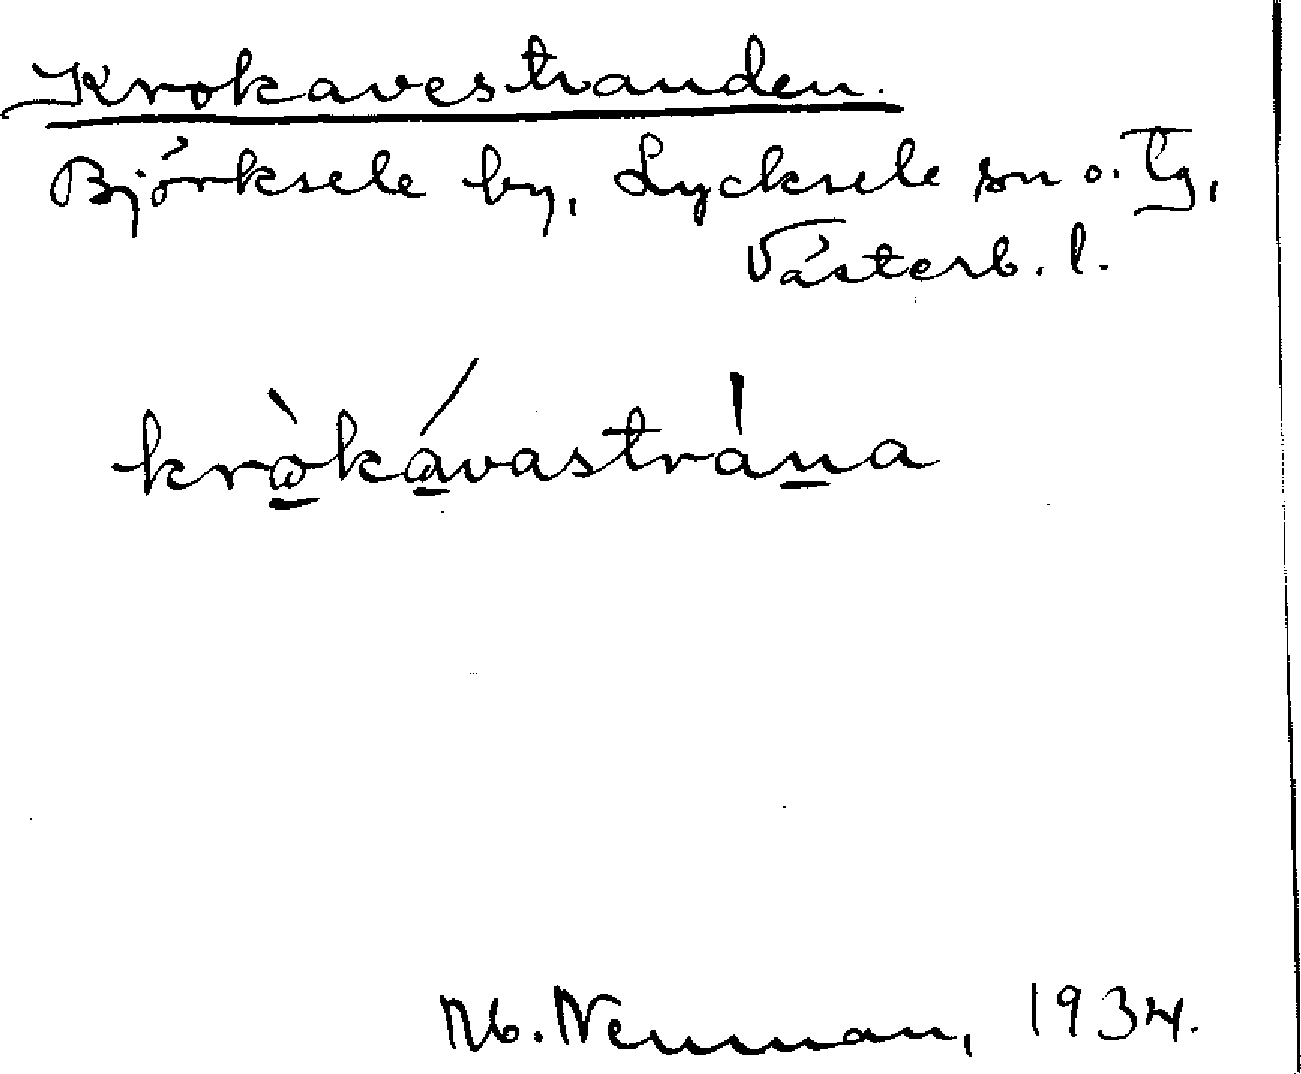 Krokavestranden.
Björksele by, Lycksele sn o. Tg,
Västerb. l.
kròkávastrána
M. Neuman, 1934.